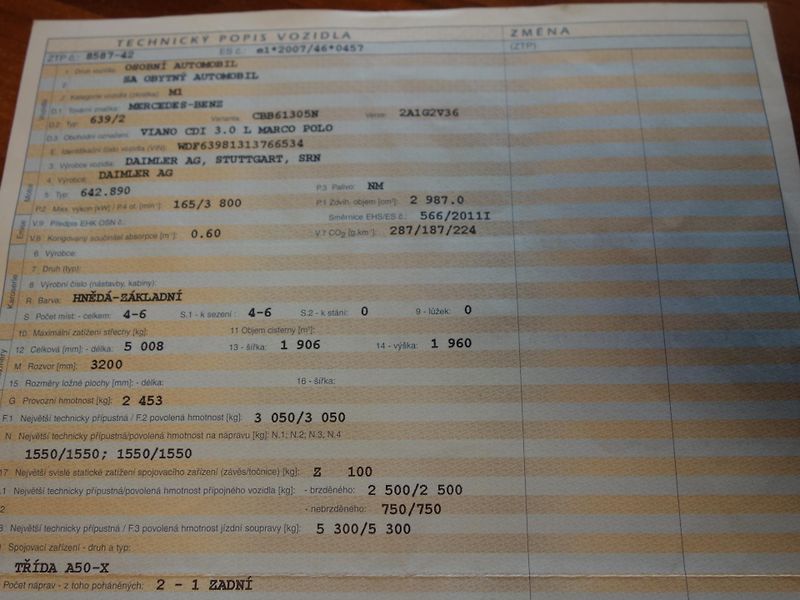 TECHNICKÝ POPIS VOZIDLA ZMĚNA
ZTP č.: 8587-42 ES č.: e1*2007/46*0457 (ZTP)
1 Druh vozidla: OSOBNÍ AUTOMOBIL
2 SA OBYTNÝ AUTOMOBIL
J Kategorie vozidla (zkratka) M1
D.1 Tovární značka: MERCEDES-BENZ
D.2 Typ: 639/2 Varianta: CBB61305N Verze: 2A1G2V36
D.3 Obchodní označení: VIANO CDI 3.0 L MARCO POLO
E Identifikační číslo vozidla (VIN): WDF63981313766534
3 Výrobce vozidla: DAIMLER AG, STUTTGART, SRN
4 Výrobce: DAIMLER AG
5 Typ: 642.890 P.3 Palivo: NM
P.2 Max. výkon [kW] / P.4 ot. [min⁻¹]: 165/3 800 P.1 Zdvih. objem [cm³]: 2 987.0
Směrnice EHS/ES č.: 566/2011I
V.9 Předpis EHK OSN č.:
V.6 Korigovaný součinitel absorpce [m⁻¹]: 0.60 V.7 CO₂ [g.km⁻¹]: 287/187/224
6 Výrobce:
7 Druh (typ):
8 Výrobní číslo (nástavby, kabiny):
R Barva: HNĚDÁ-ZÁKLADNÍ
S Počet míst - celkem: 4-6 S.1 - k sezení: 4-6 S.2 - k stání: 0 9 - lůžek: 0
10 Maximální zatížení střechy [kg]: 11 Objem cisterny [m³]:
12 Celková [mm]: - délka: 5 008 13 - šířka: 1 906 14 - výška: 1 960
M Rozvor [mm]: 3200
15 Rozměry ložné plochy [mm]: - délka: 16 - šířka:
G Provozní hmotnost [kg]: 2 453
F.1 Největší technicky přípustná / F.2 povolená hmotnost [kg]: 3 050/3 050
N Největší technicky přípustná/povolená hmotnost na nápravu [kg]: N.1; N.2; N.3, N.4
1550/1550; 1550/1550
17 Největší svislé statické zatížení spojovacího zařízení (závěs/točnice) [kg]: Z 100
.1 Největší technicky přípustná/povolená hmotnost přípojného vozidla [kg]: - brzděného: 2 500/2 500
2 - nebrzděného: 750/750
8 Největší technicky přípustná / F.3 povolená hmotnost jízdní soupravy [kg]: 5 300/5 300
Spojovací zařízení - druh a typ:
TŘÍDA A50-X
Počet náprav - z toho poháněných: 2 - 1 ZADNÍ